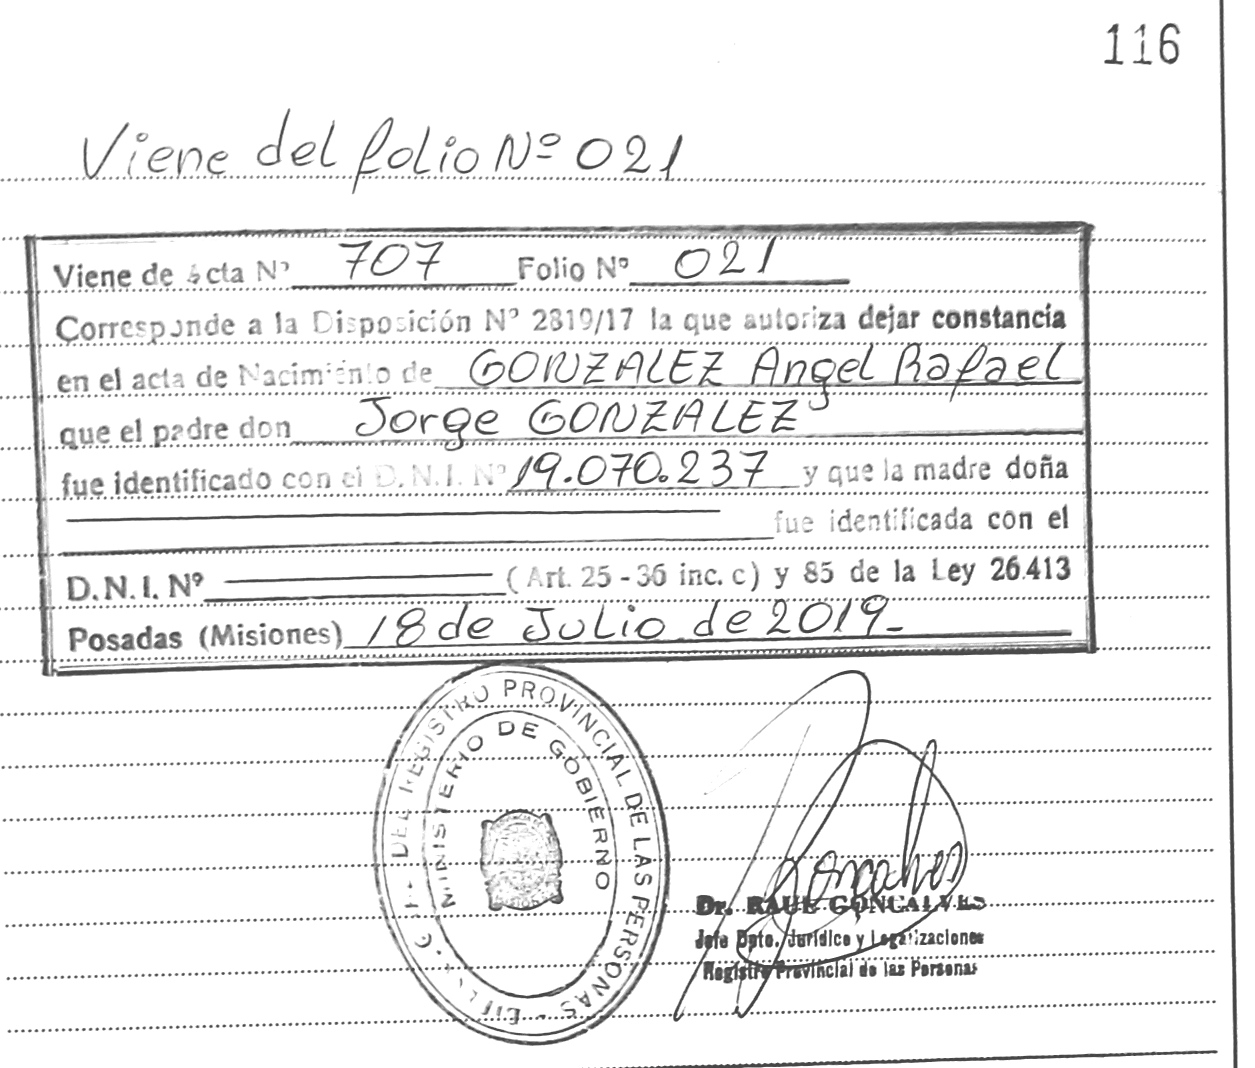 116
Viene del folio Nº 021
Viene de Acta Nº 707 Folio Nº 021
Corresponde a la Disposición Nº 2819/17 la que autoriza dejar constancia
en el acta de Nacimiento de GONZALEZ Angel Rafael
que el padre don Jorge GONZALEZ
fue identificado con el D.N.I. Nº 19.070.237 y que la madre doña
fue identificada con el
D.N.I. Nº (Art. 25 - 36 inc. c) y 85 de la Ley 26.413
Posadas (Misiones) 18 de Julio de 2019
DEL REGISTRO PROVINCIAL DE LAS PERSONAS
MINISTERIO DE GOBIERNO
Goncalves
Dr. RAUL GONCALVES
Jefe Dpto. Jurídico y Legalizaciones
Registro Provincial de las Personas